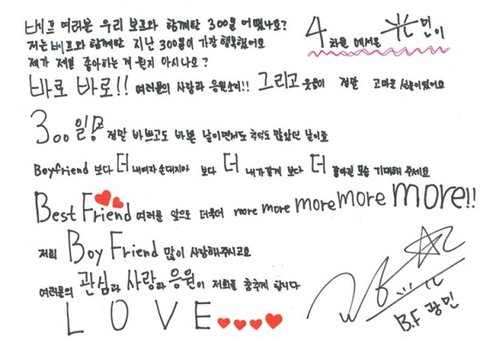 베프 여러분 우리 보프와 함께한 300일 어땠나요?
저는 베프와 함께한 지난 300일이 가장 행복했어요
제가 제일 좋아하는 게 뭔지 아시나요?
4차원 에서온 光민이
바로 바로!! 여러분의 사랑과 응원소리!! 그리고 웃음이 정말 고마운 선물이었어요
300일은 정말 바쁘고도 바쁜 날이면서도 추억도 많았던 날이죠
Boyfriend 보다 더 내여자 손대지마 보다 더 내가갈게 보다 더 멋아진 모습 기대해 주세요
Best Friend 여러분 앞으로 더욱더 more more more more more more!!
저희 Boy Friend 많이 사랑해주시고요
여러분의 관심과 사랑과 응원이 저희를 춤추게 합니다
L O V E
B.F 광민